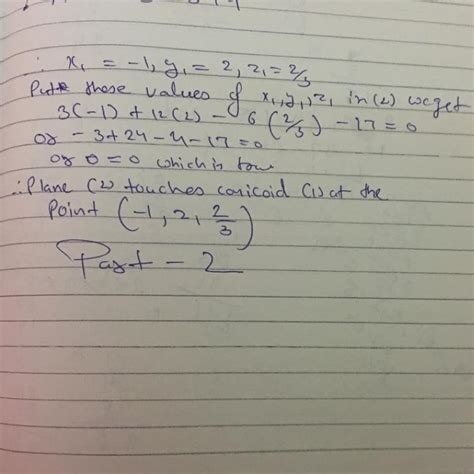 ∴ x₁ = -1, y₁ = 2, z₁ = 2/3
Put these values of x₁, y₁, z₁ in (2) we get
3(-1) + 12(2) - 6(2/3) - 17 = 0
or -3+24-4-17=0
or 0=0 which is true
∴ Plane (2) touches conicoid (1) at the
Point (-1, 2, 2/3)
Part - 2